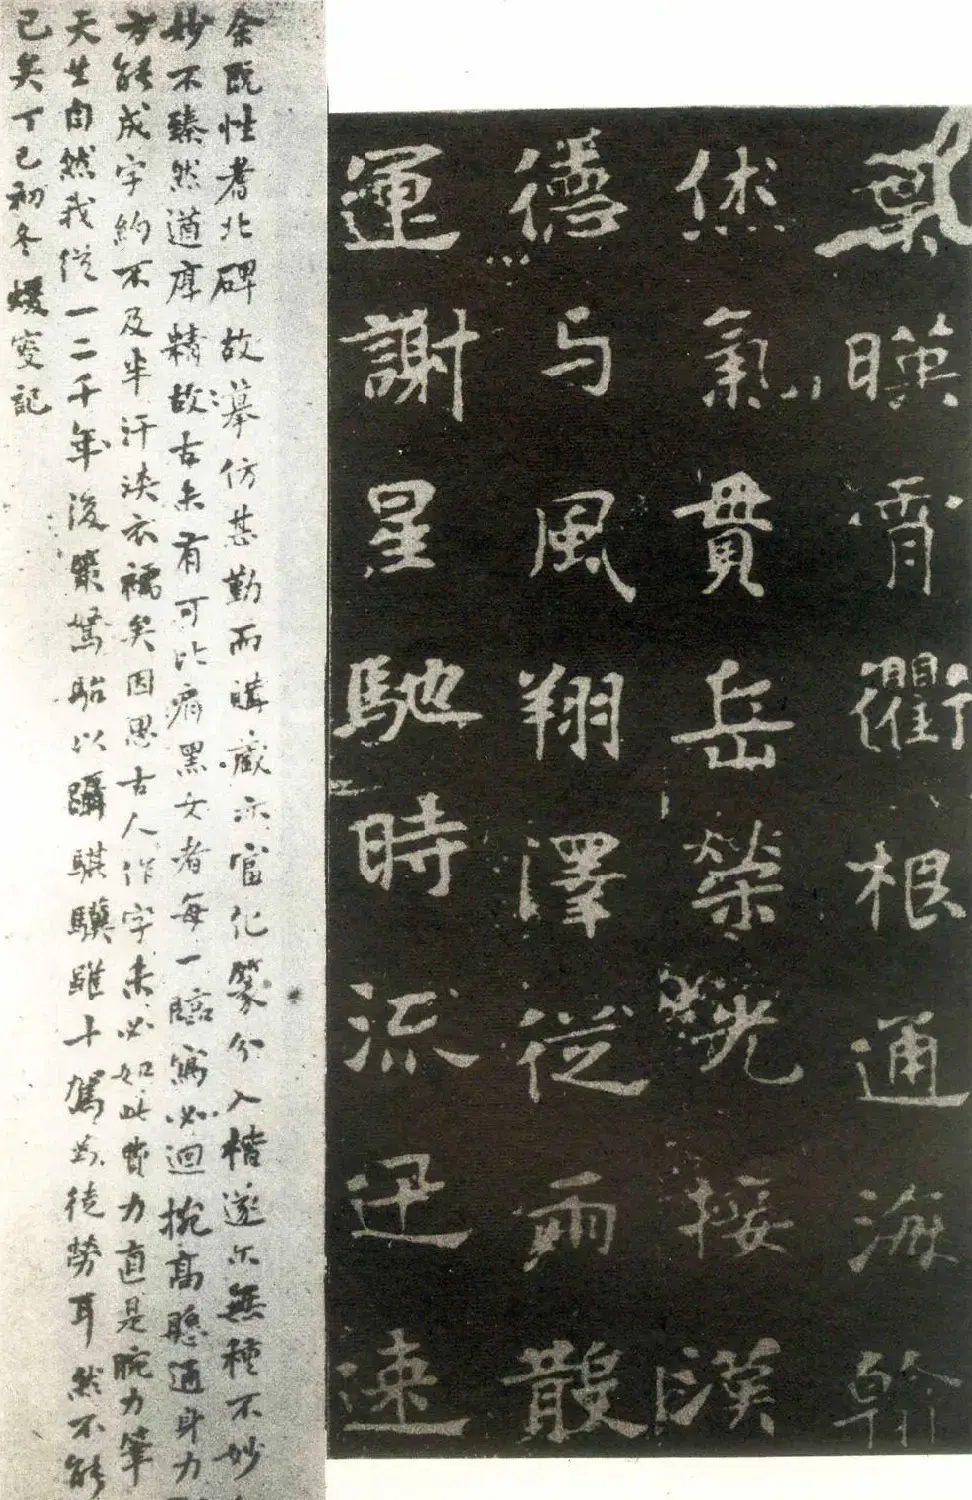 葉暎霄衢根通海翰
休氣貫岳榮光接漢
德与風翔澤從雨散
運謝星馳時流迅速
余既性耆北碑故摹仿甚勤而購藏亦富化篆分入楷遂尔無種不妙
妙不臻然遒厚精故古未有可比肩黑女者每一臨寫必迴捥高懸通身力
方能成字約不及半汗浹衣襦矣因思古人作字未必如此費力直是腕力筆
天生自然我從一二千年後策駑駘以躡騏驥雖十駕為徒勞耳然不能
已矣丁巳初冬蝯叟記